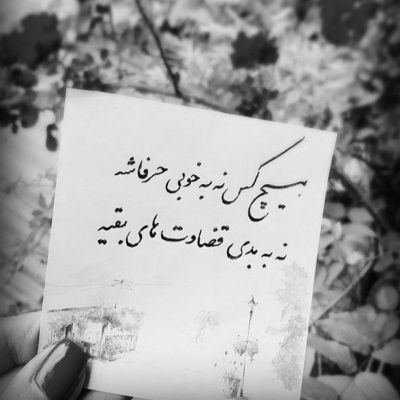 هیچ کس نه به خوبی حرفاشه
نه به بدی قضاوت های بقیه